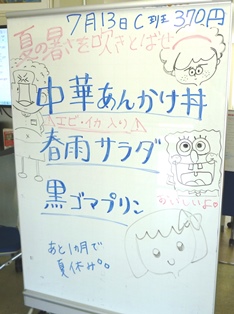 7月13日C班 370円
夏の暑さを吹きとばせ
中華あんかけ丼
エビ・イカ入り
春雨サラダ
黒ゴマプリン
おいしいよ。
あと1か月で
夏休み